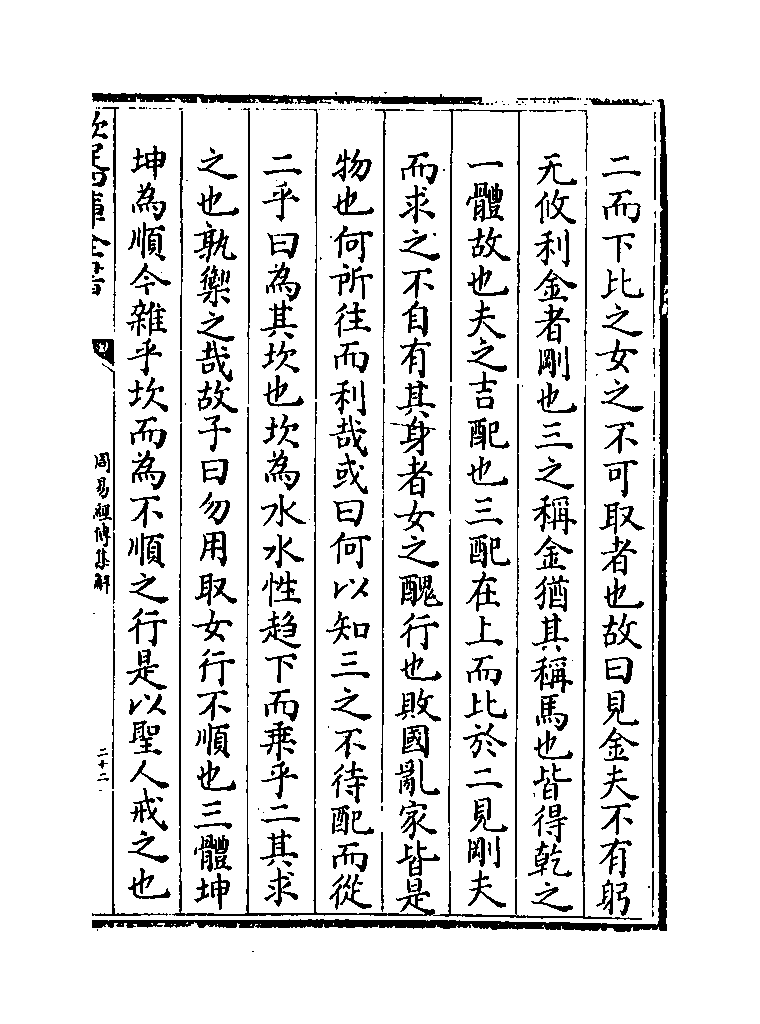 二而下比之女之不可取者也故曰見金夫不有躬
无攸利金者剛也三之稱金猶其稱馬也皆得乾之
一體故也夫之吉配也三配在上而比於二見剛夫
而求之不自有其身者女之醜行也敗國亂家皆是
物也何所往而利哉或曰何以知三之不待配而從
二乎曰為其坎也坎為水水性趨下而乘乎二其求
之也孰禦之哉故子曰勿用取女行不順也三體坤
坤為順今雜乎坎而為不順之行是以聖人戒之也
欽定四庫全書
周易經傳集解
二十二